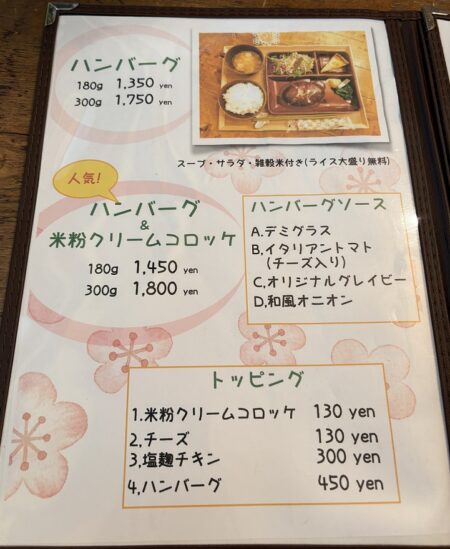 ハンバーグ
180g 1,350 yen
300g 1,750 yen
スープ・サラダ・雑穀米付き(ライス大盛り無料)
人気!
ハンバーグ
&
米粉クリームコロッケ
180g 1,450 yen
300g 1,800 yen
ハンバーグソース
A.デミグラス
B.イタリアントマト
(チーズ入り)
C,オリジナルグレイビー
D,和風オニオン
トッピング
1.米粉クリームコロッケ 130 yen
2,チーズ 130 yen
3,塩麹チキン 300 yen
4,ハンバーグ 450 yen